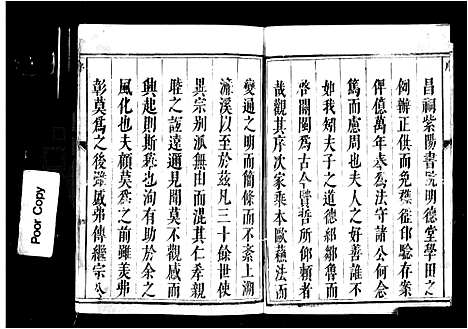 昌祠紫陽書院明德堂學田之
何辦正供而優獲徵印騐存案
俾億萬年奉為法守諸公何莫
而慮周也夫人之好善誰不
如我矧夫子之道德鄒魯而
啓閩為古今賢哲所仰賴者
哉觀其序次家乘本歐蘇法而
變通之明而簡條而不紊上溯
濂溪以至於茲凡三十餘世使
異宗別派無由而混其仁孝
睦之誼遠邇見聞莫不觀感而
興起則斯乘也洵有助於余之
風化也夫顧莫為之前雖美弗
彰莫為之後雖盛弗傳繼宗公
序
Poor Copy